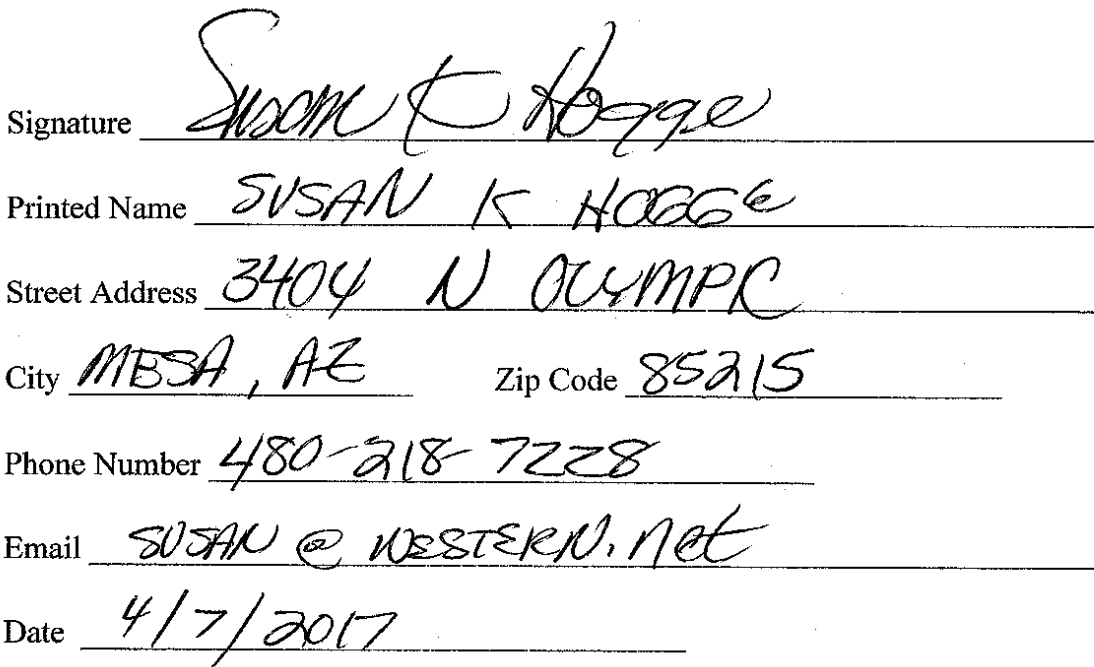 Signature Susan K Hogge
Printed Name SUSAN K HOGGE
Street Address 3404 N OLYMPIC
City MESA, AZ Zip Code 85215
Phone Number 480-218-7228
Email SUSAN @ WESTERN.net
Date 4/7/2017